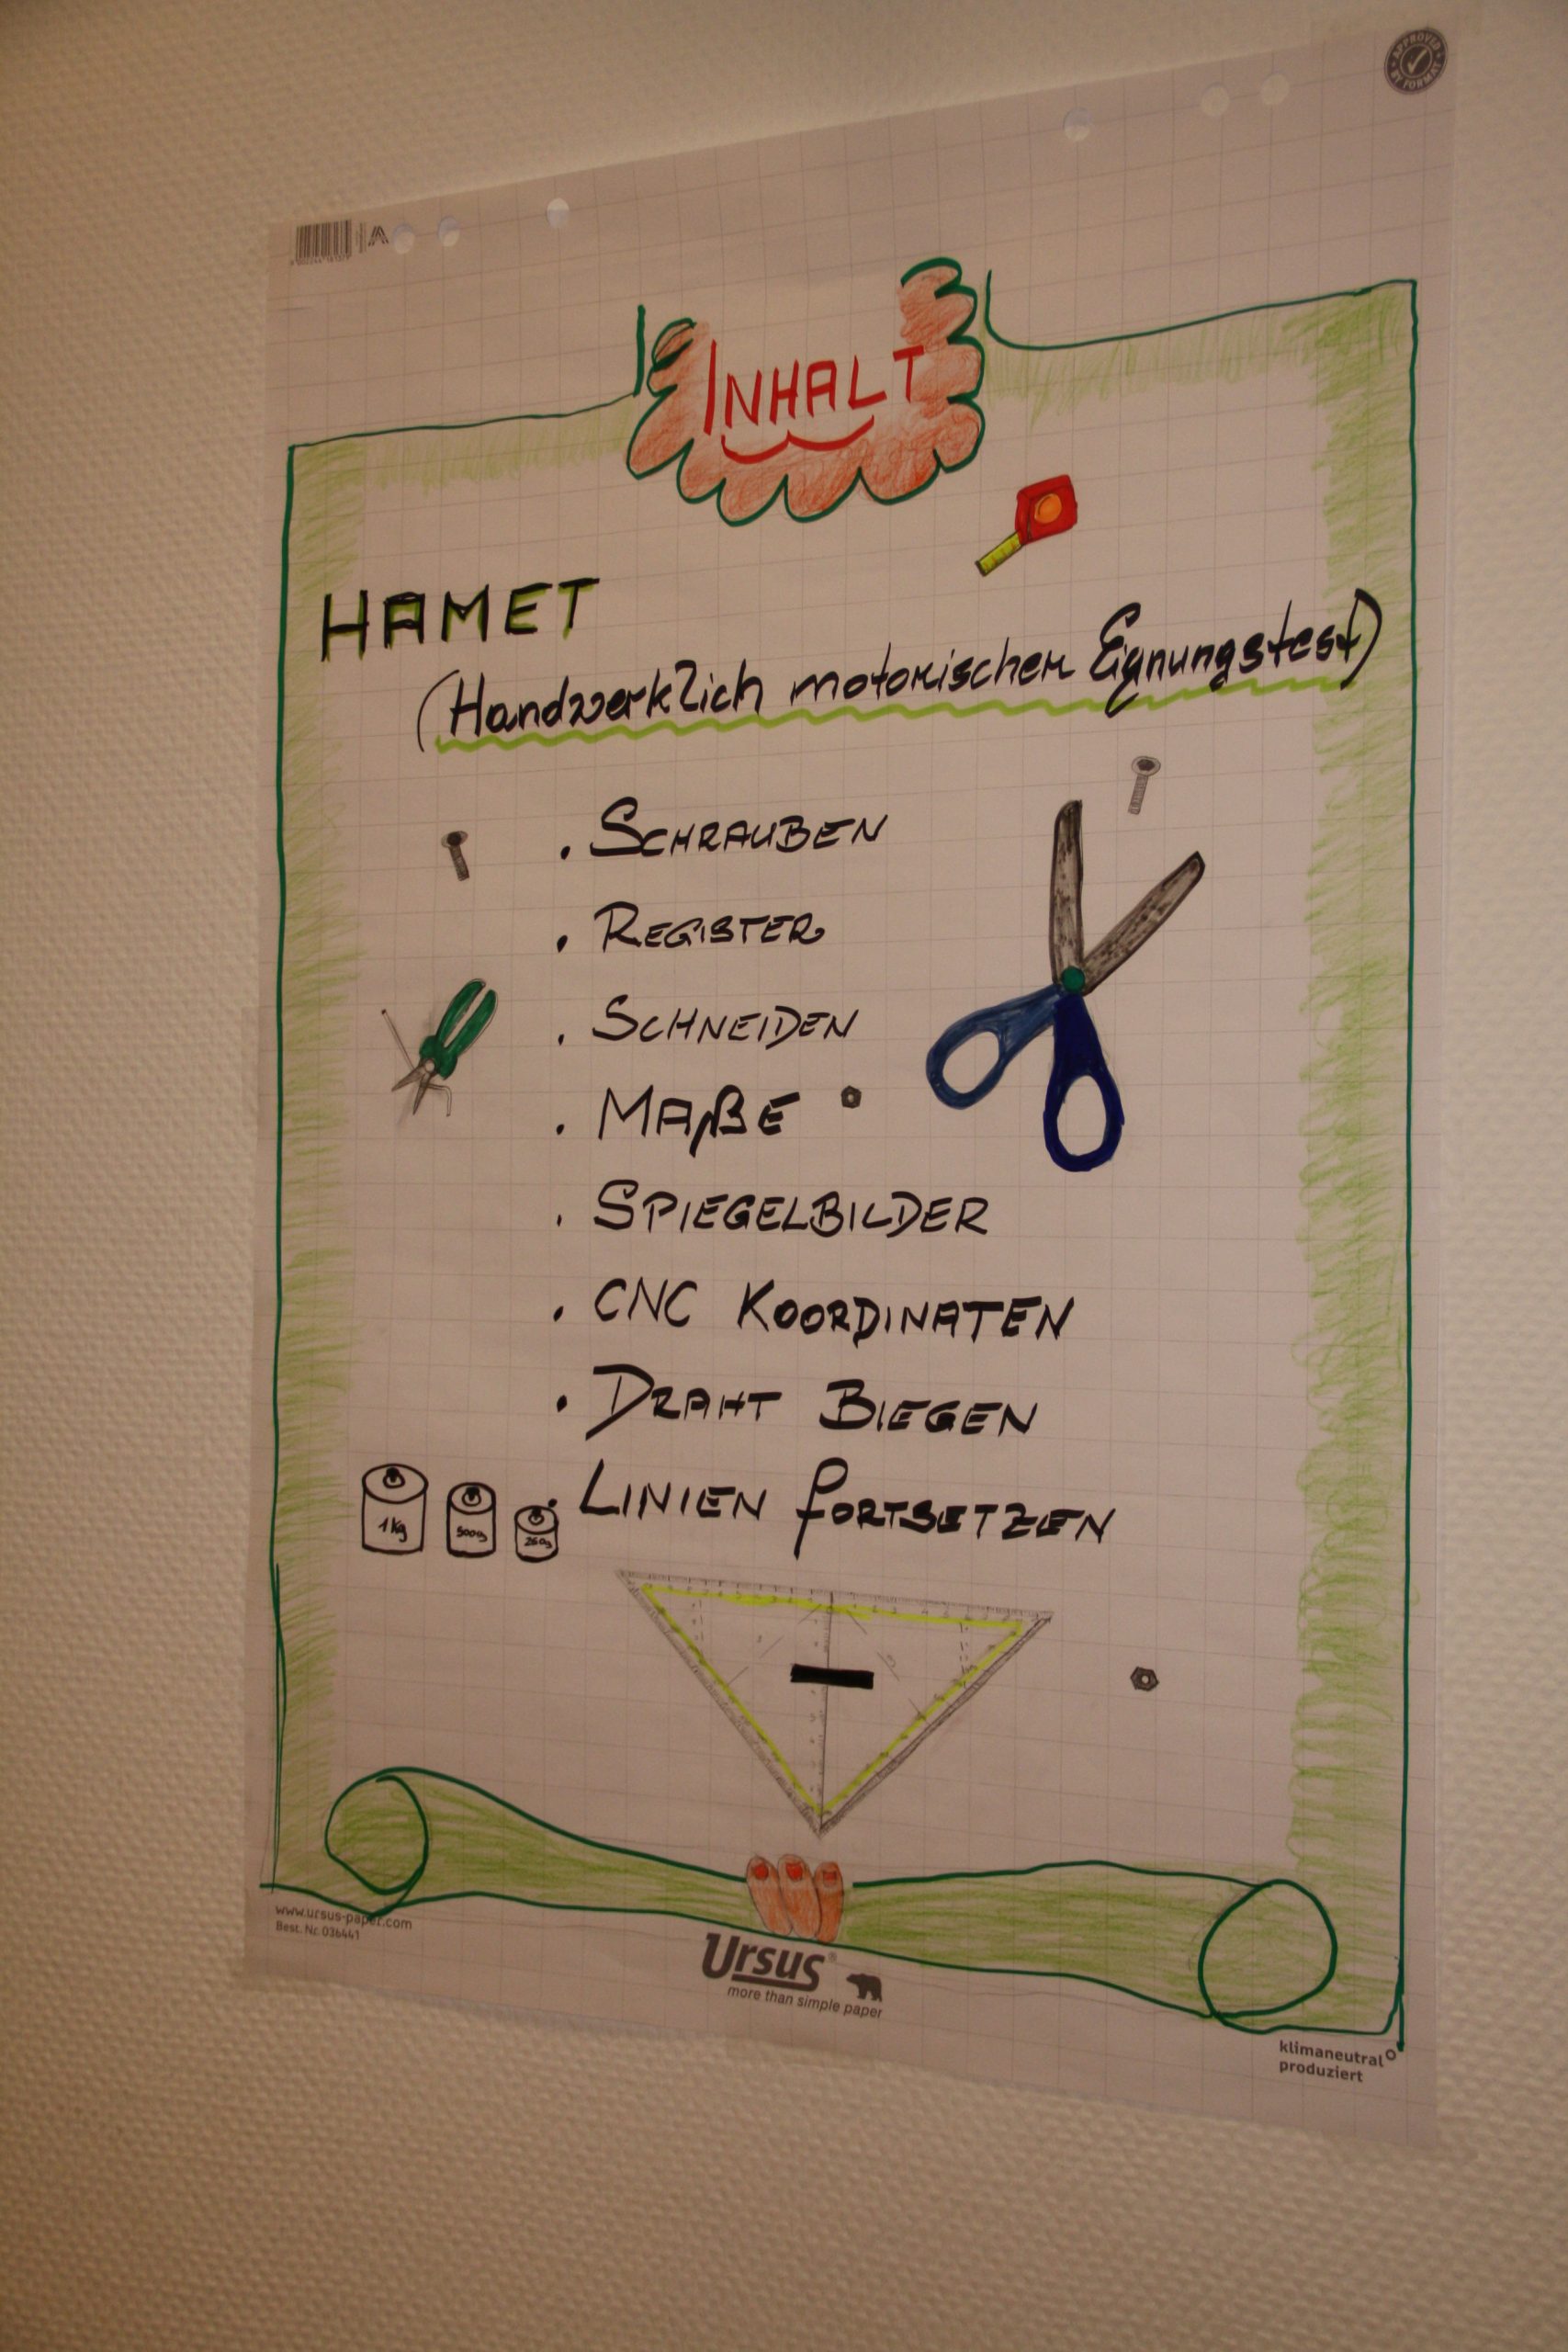 APPROVED BY FORMAT
INHALT
HAMET
(Handwerklich motorischer Eignungstest)
. SCHRAUBEN
. REGISTER
. SCHNEIDEN
. MAßE
. SPIEGELBILDER
. CNC KOORDINATEN
. DRAHT BIEGEN
. LINIEN FORTSETZEN
1Kg 500g 250g
www.ursus-paper.com
Best. Nr. 036441
Ursus®
more than simple paper
klimaneutral
produziert